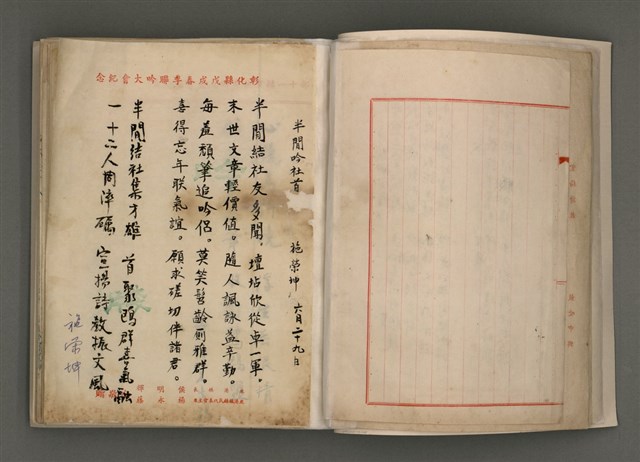 彰化縣戊戌春季聯吟大會紀念
半閒吟社首 施榮坤 六月二十九日
半閒結社友多聞。壇坫欣從卓一軍。
末世文章輕價值。隨人諷詠益辛勤。
每羞頹筆追吟侶。莫笑髫齡廁雅群。
喜得忘年联氣誼。願求磋切伴諸君。
半閒結社集才雄 首聚鷗群喜氣融
一十六人同淬礪 宣揚詩教振文風
施榮坤